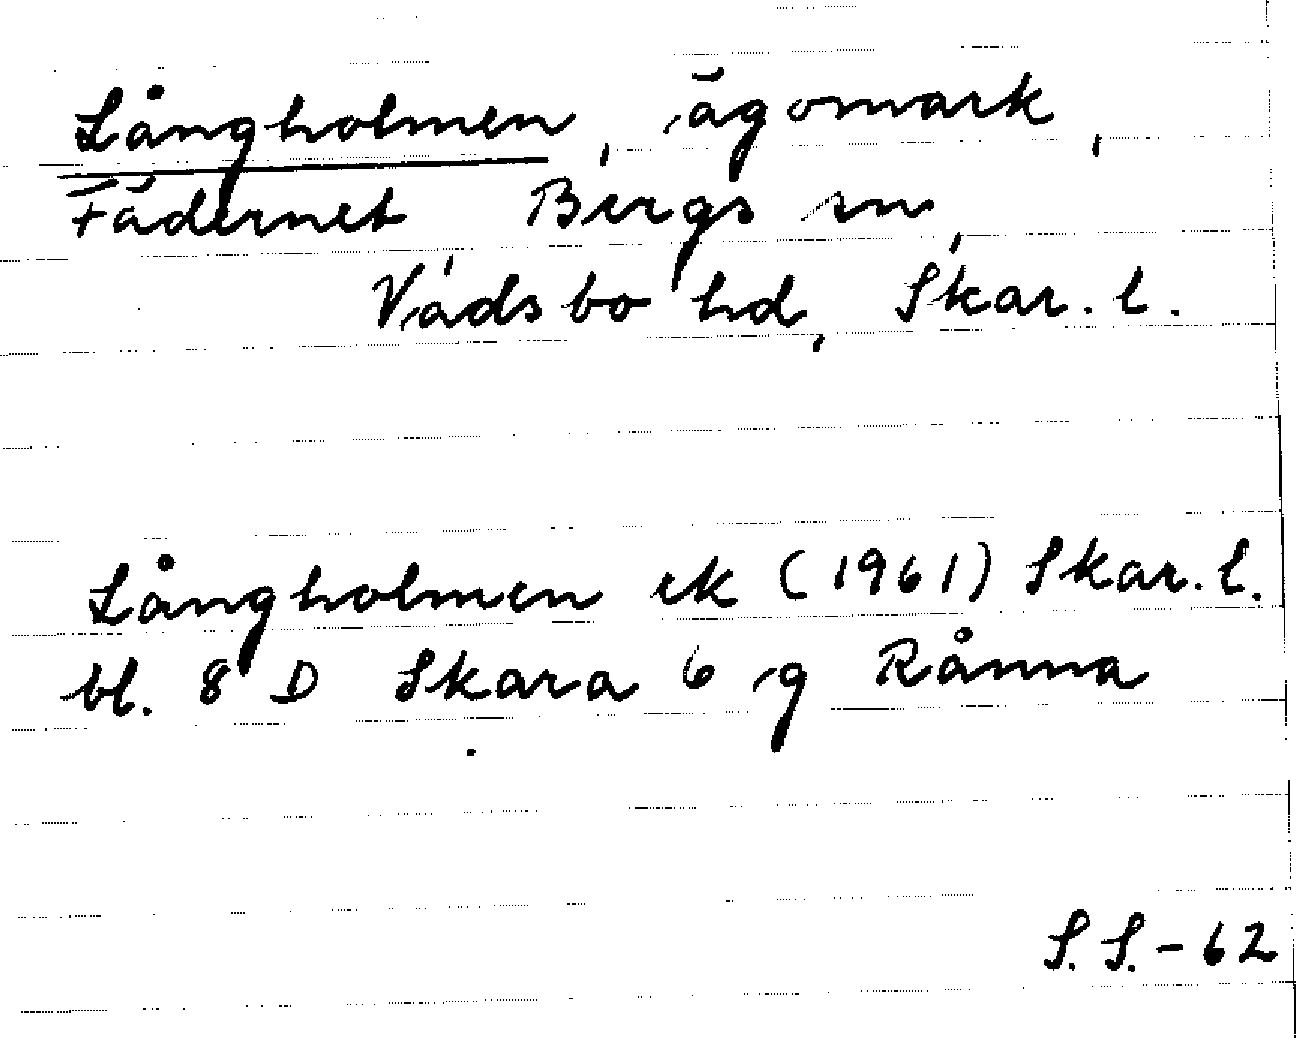 Långholmen, ägomark,
Fädernet Bergs sn,
Vadsbo hd, Skar. l.
Långholmen ek (1961) Skar. l.
bl. 8 D Skara 6 g Rånna
S. S. - 62